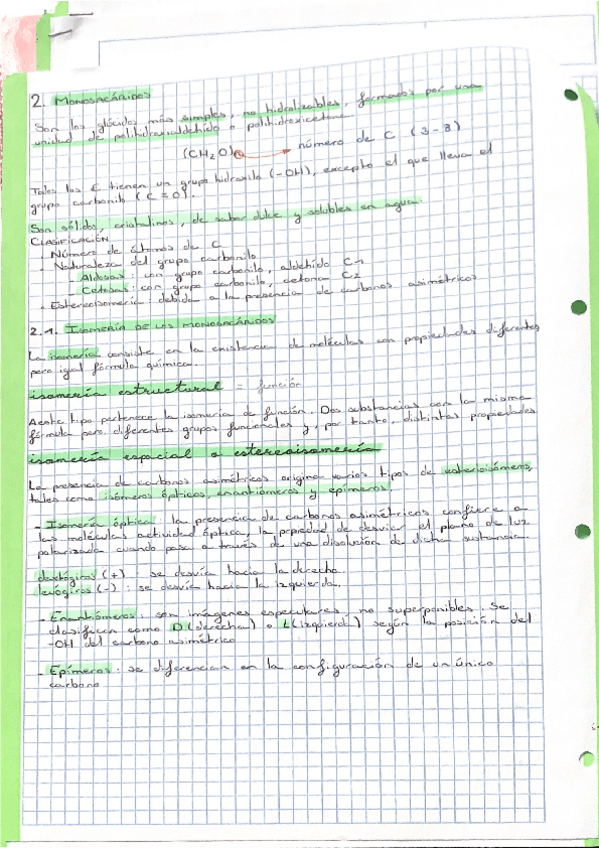 2. MONOSACÁRIDOS
Son los glúcidos más simples, no hidrolizables, formados por una
unidad de polihidroxialdehído o polihidroxicetona
(CH2O)n → número de C (3-8)
Todos los C tienen un grupo hidroxilo (-OH), excepto el que lleva el
grupo carbonilo (C=O).
Son sólidos, cristalinos, de sabor dulce y solubles en agua.
CLASIFICACIÓN
- Número de átomos de C
- Naturaleza del grupo carbonilo
- Aldosas: con grupo carbonilo, aldehído C1
- Cetosas: con grupo carbonilo, cetona C2
- Estereoisomería: debida a la presencia de carbonos asimétricos
2.1. ISOMERÍA DE LOS MONOSACÁRIDOS
La isomería consiste en la existencia de moléculas con propiedades diferentes
pero igual fórmula química.
isomería estructural = función
A este tipo pertenece la isomería de función. Dos substancias con la misma
fórmula pero diferentes grupos funcionales y, por tanto, distintas propiedades
isomería espacial o estereoisomería
La presencia de carbonos asimétricos origina varios tipos de esteroisómeros,
tales como isómeros ópticos, enantiómeros y epímeros.
- Isomería óptica: la presencia de carbonos asimétricos confiere a
las moléculas actividad óptica, la propiedad de desviar el plano de luz
polarizada cuando pasa a través de una disolución de dicha sustancia.
dextógiros (+): se desvía hacia la derecha.
levógiros (-): se desvía hacia la izquierda.
- Enantiómeros: son imágenes especulares, no superponibles. Se
clasifican como D (derecha) o L (izquierda) según la posición del
-OH del carbono asimétrico
- Epímeros: se diferencian en la configuración de un único
carbono